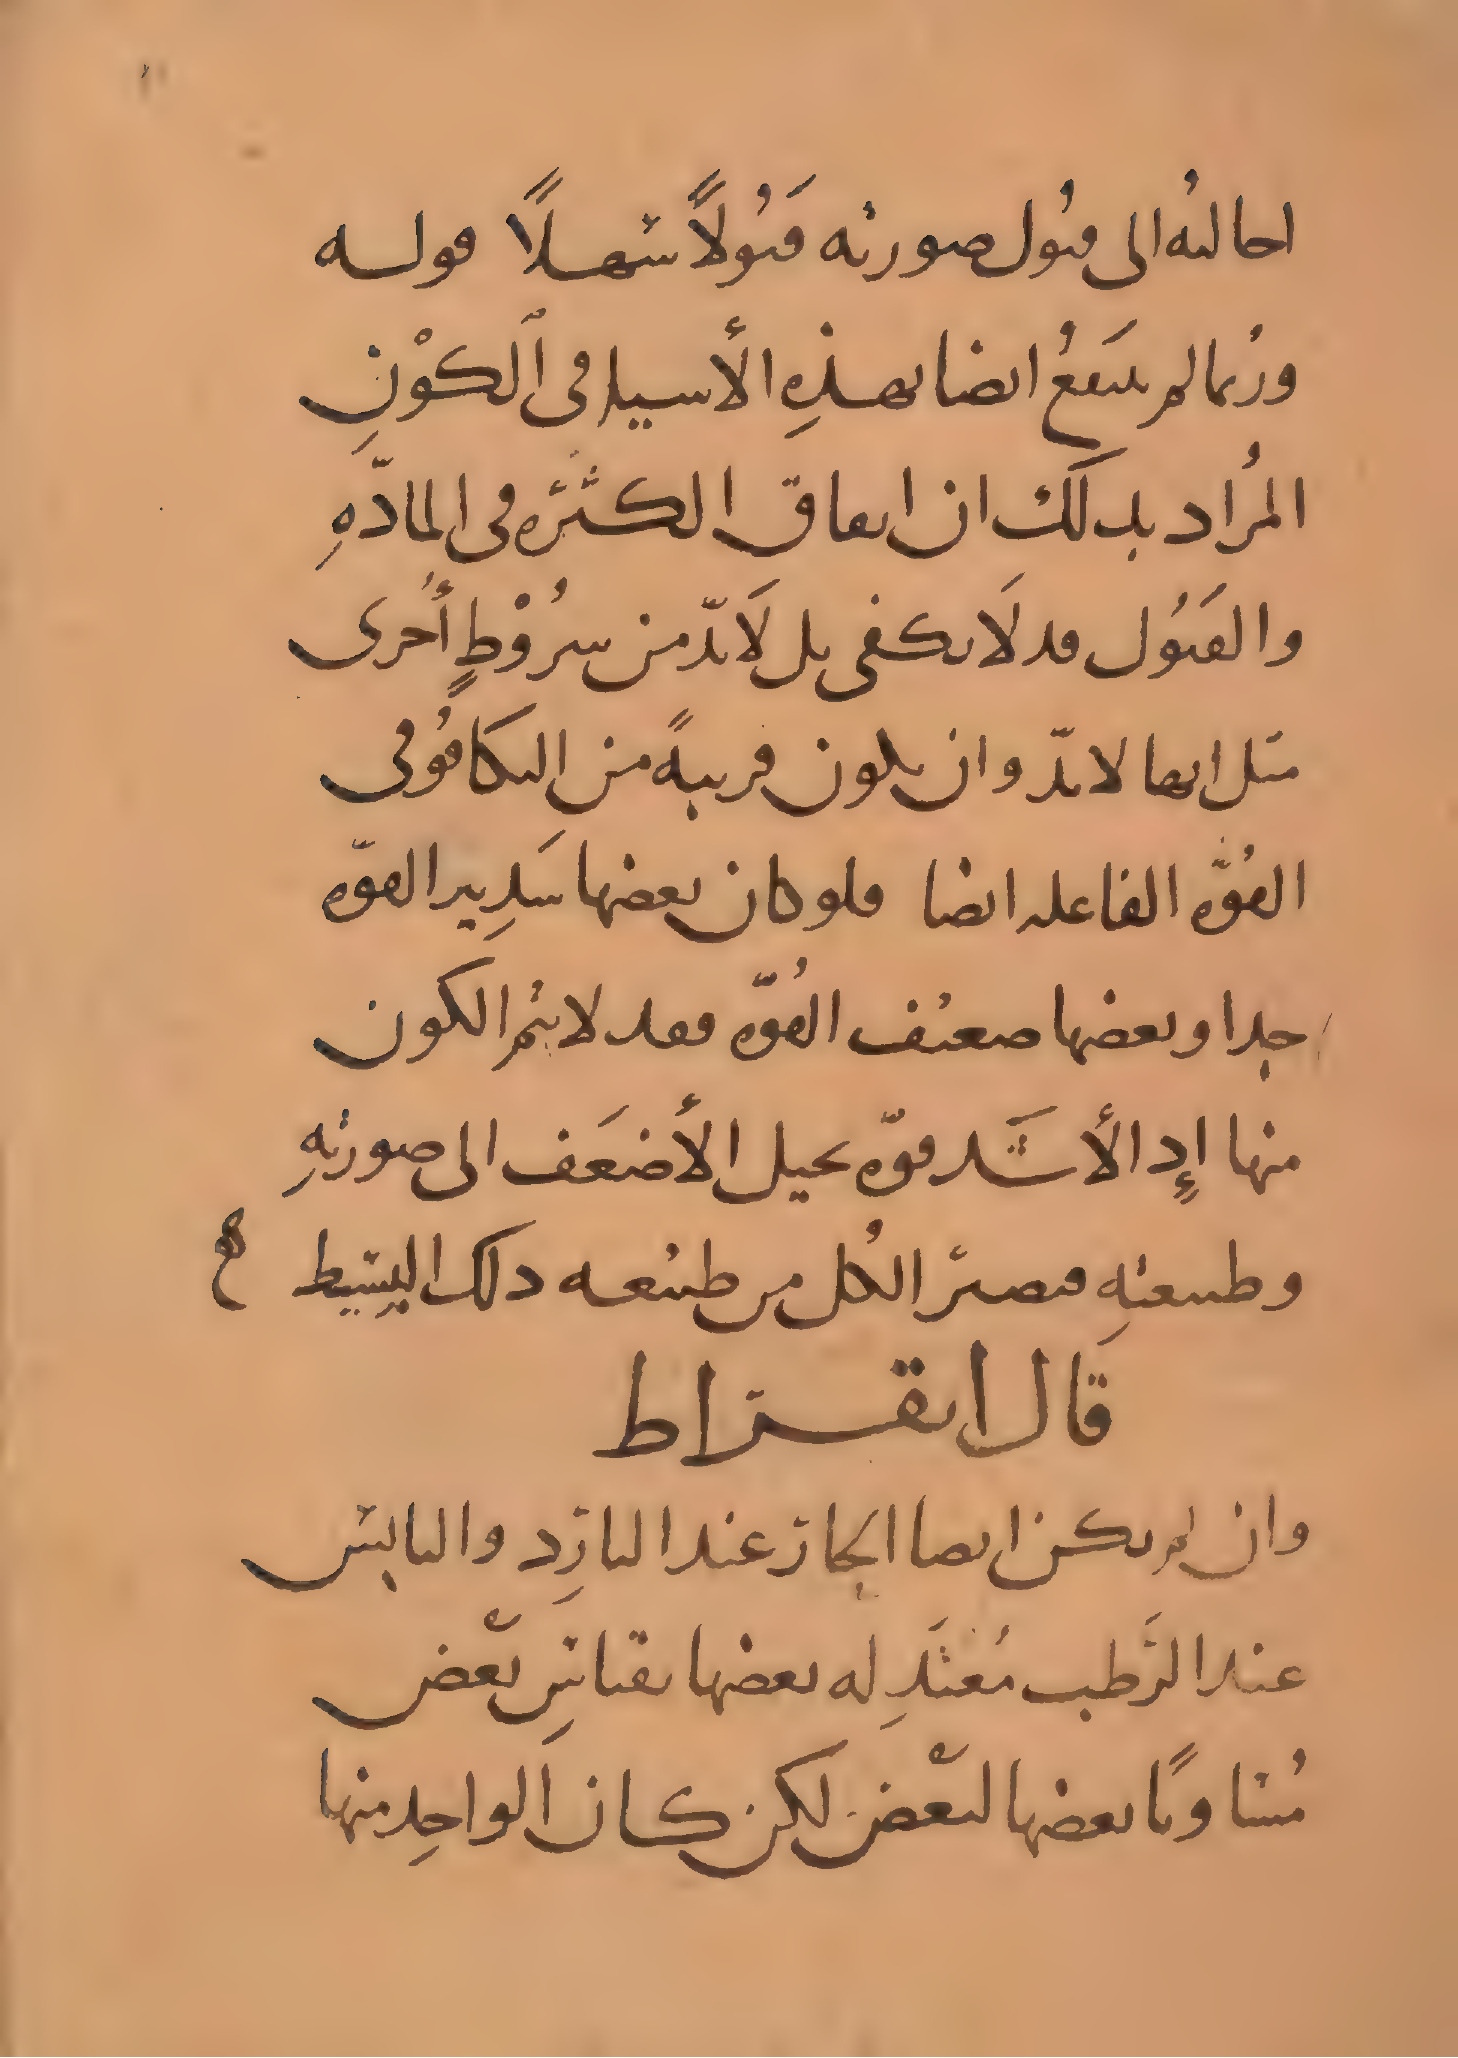 احالته الى قبول صورته قَبُولاً سَهلاً قوله
ورُبما لم ينتفعُ ايضا بهذهِ الأشياء في الكوْنِ
المرُاد بذلَك ان اتفاق الكثرَه في المادّهِ
والقَبُول قد لَا يكفي بل لَا بدّ من شرُوْطٍ أُخرى
مثل انها لا بدّ وان يكون قريبةً من التكَافُو في
القُوَّه الفاعله ايضا فلو كان بعضها شَدِيد القوّه
جدا وبعضها ضعيف القُوّه فقد لا يتم الكون
منها إِذ الأشَد قوّه يحيل الأضعَف الى صورتهِ
وطبيعتهِ فيصير الكُل من طبيعه ذلك البسيط
قال ابقراط
وان لم يكن ايضا الحار عند البارِد واليابس
عند الرَطب مُعتَدِله بعضها بقياسِ بعْض
مُتساويًا بعضها لبعْض لكن كان الواحِد منها